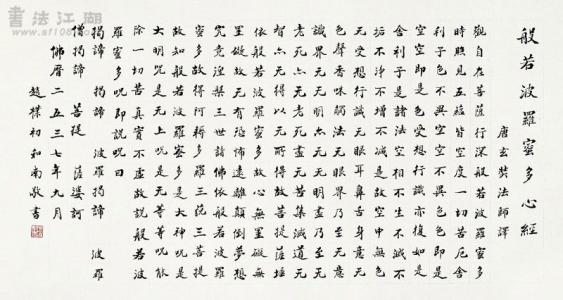 書法江湖
www.sf108.com
般若波羅蜜多心經
唐玄奘法師譯
觀自在菩薩行深般若波羅蜜多
時照見五蘊皆空度一切苦厄舍
利子色不異空空不異色色即是
空空即是色受想行識亦復如是
舍利子是諸法空相不生不滅不
垢不淨不增不減是故空中無色
无受想行識无眼耳鼻舌身意无
色聲香味觸法无眼界乃至无意
識界无无明亦无无明盡乃至无
老死亦无老死盡无苦集滅道无
智亦无得以无所得故菩提薩埵
依般若波羅蜜多故心無罣礙無
罣礙故无有恐怖遠離顛倒夢想
究竟涅槃三世諸佛依般若波羅
蜜多故得阿耨多羅三藐三菩提
故知般若波羅蜜多是大神呪是
大明呪是无上呪是无等等呪能
除一切苦真實不虛故說般若波
羅蜜多呪即說呪曰
揭諦 揭諦 波羅揭諦 波羅
僧揭諦 菩提 薩婆訶
佛曆二五三七年九月
趙樸初和南敬書